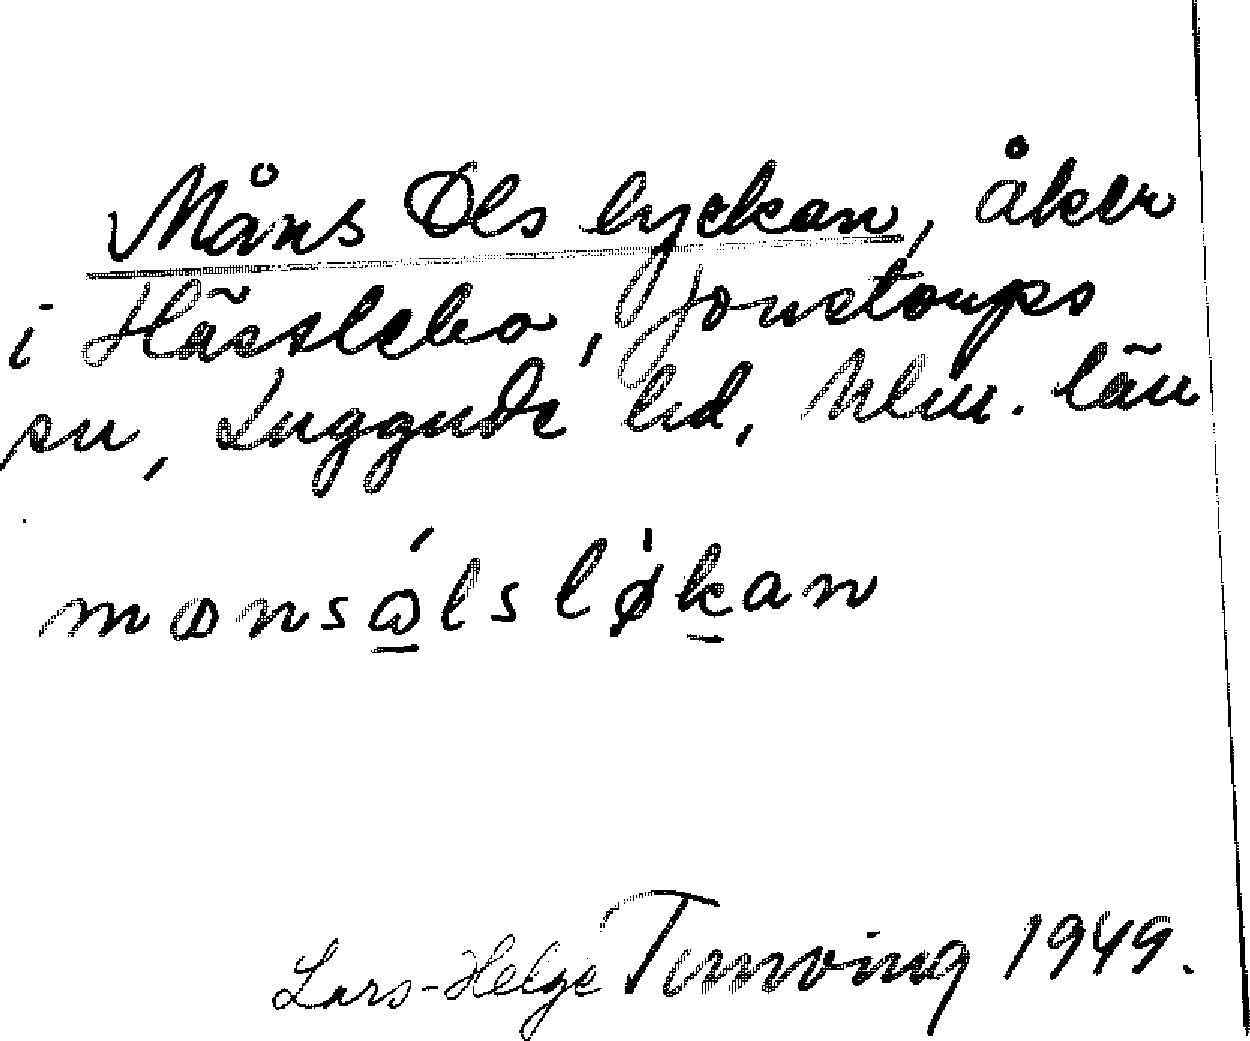 Måns Ols lyckan, åker
i Hässlebo, Jonstorps
sn, Luggude hd, Mlm. län
mɷnsɷ́lsløkan
Lars-Helge Tunving 1949.